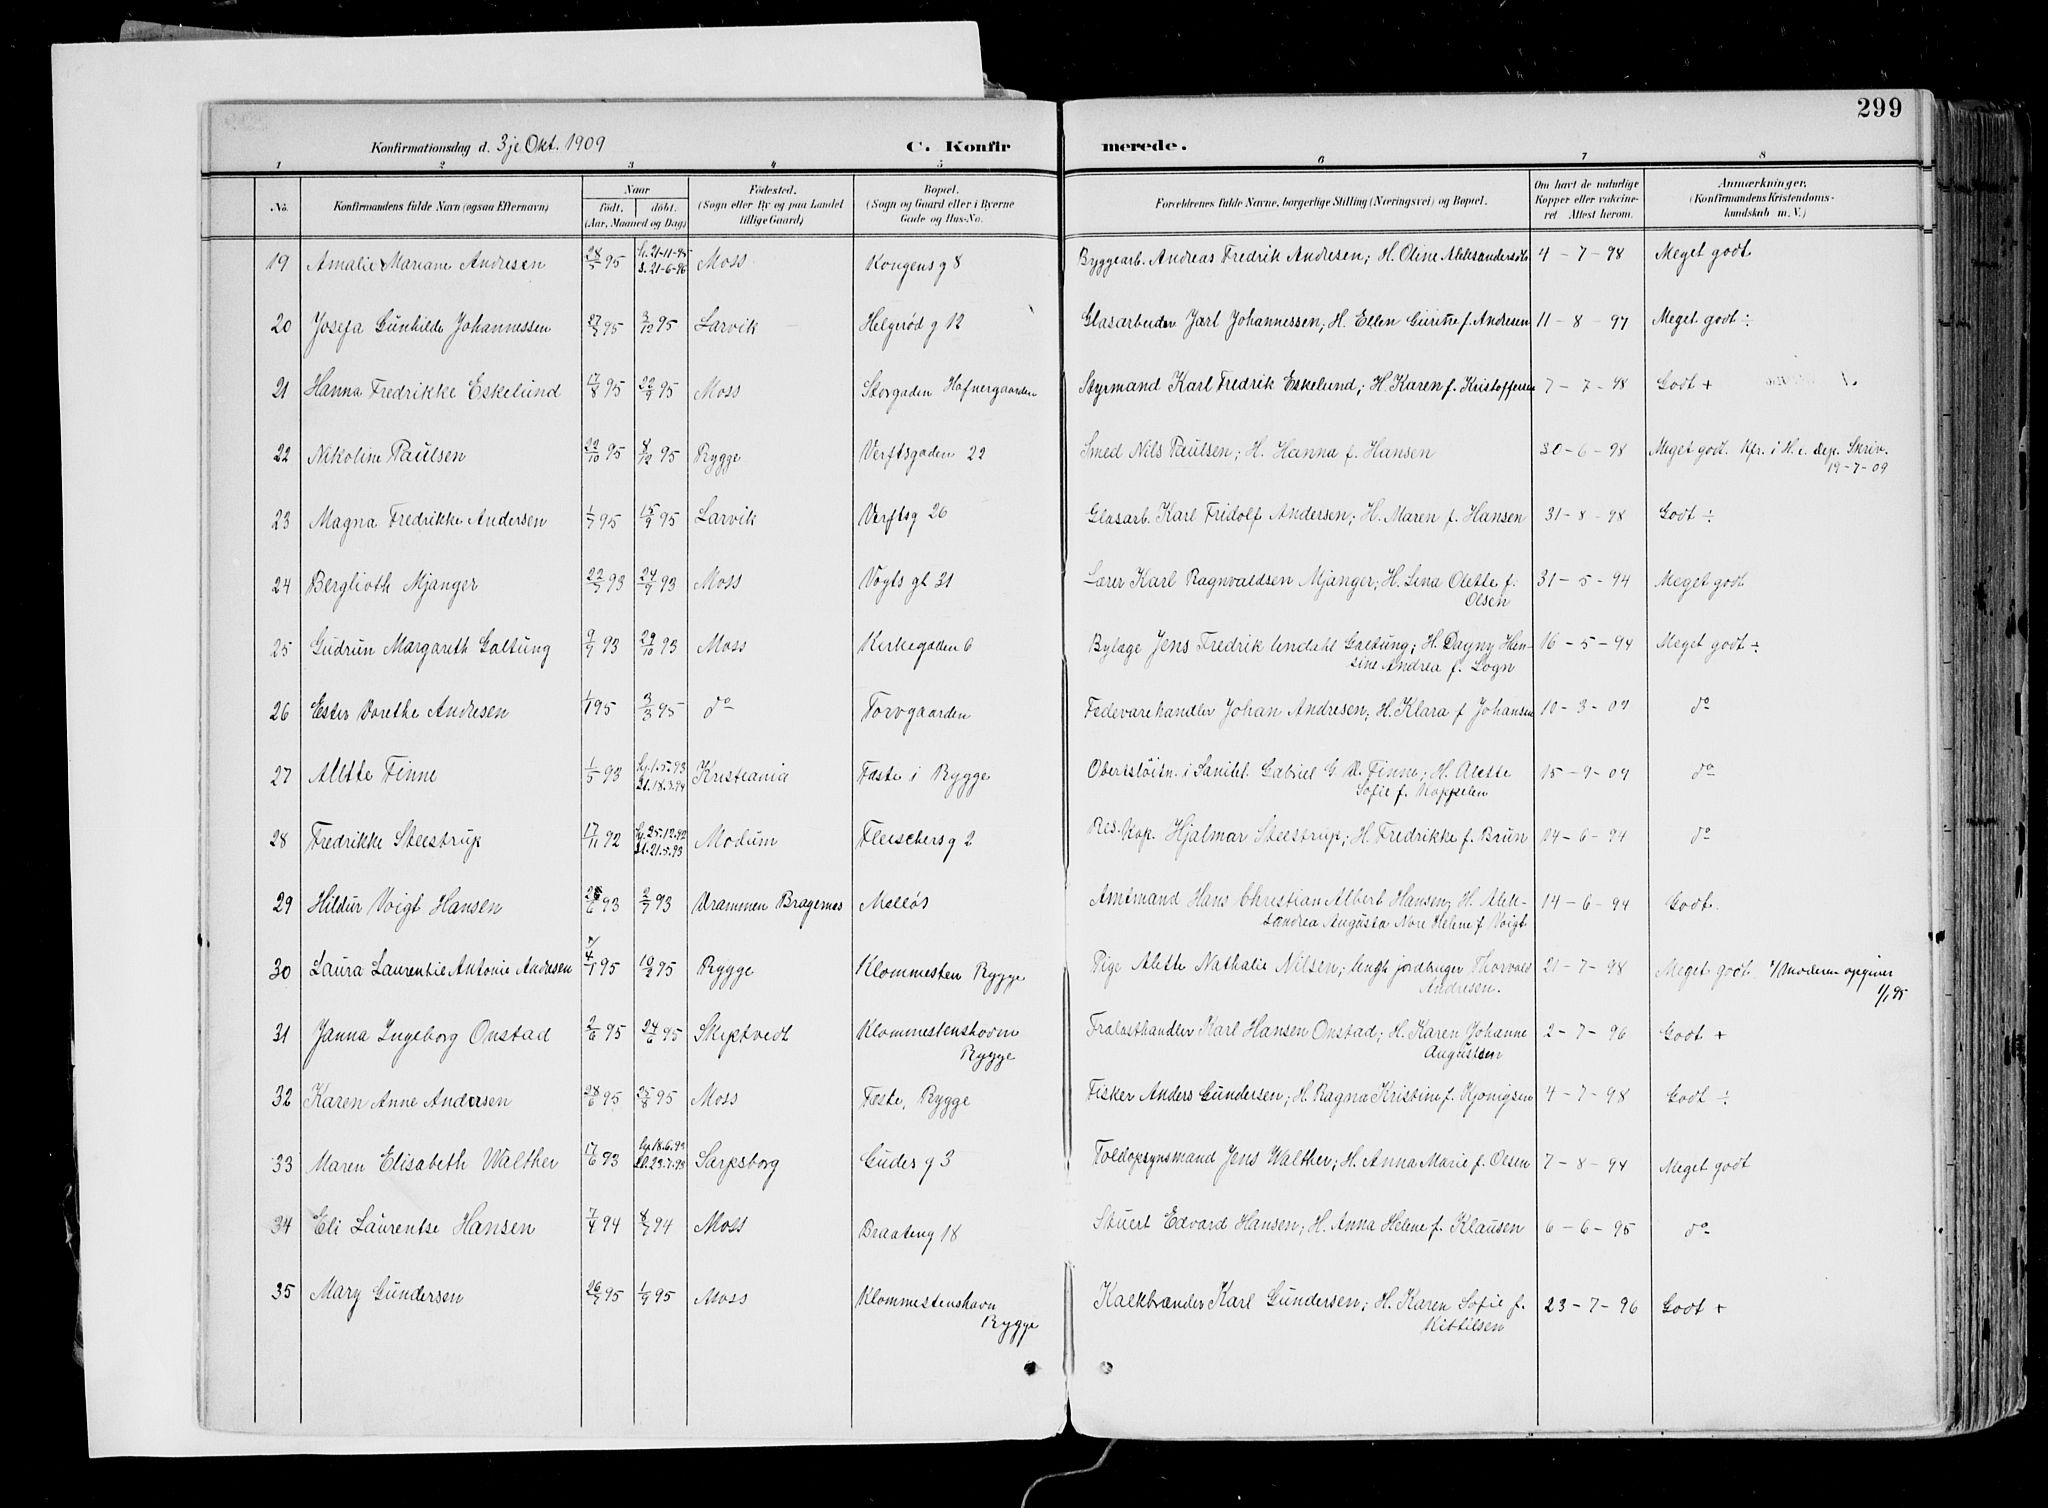 299
Konfirmationsdag d. 3je Okt. 1909 C. Konfirmerede.
1 2 3 4 5 6 7 8
No. Konfirmandens fulde Navn (ogsaa Efternavn) Naar født, døbt. (Aar, Maaned og Dag) Fødested. (Sogn eller By og paa Landet tillige Gaard) Bopæl. (Sogn og Gaard eller i Byerne Gade og Hus-No. Forældrenes fulde Navne, borgerlige Stilling (Næringsvei) og Bopæl. Om havt de naturlige Kopper eller vakcineret Attest herom. Anmærkninger, (Konfirmandens Kristendomskundskab m. V.)
19 Amalie Mariane Andresen 28/5 95 21-11-95 21-6-96 Moss Kongens g 8 Byggearb. Andreas Fredrik Andresen; H. Oline Aleksandersdt 4-7-98 Meget godt
20 Josefa Gunhilde Johannessen 27/7 95 3/12 95 Larvik Helgerød g 12 Glasarbeider Jarl Johannessen; H. Ellen Gurine f. Andresen 11-8-97 Meget godt ÷
21 Hanna Fredrikke Eskelund 17/8 95 22/9 95 Moss Storgaden Hafnergaarden Styrmand Karl Fredrik Eskelund; H Karen f. Kristoffersen 7-7-98 Godt +
22 Nikoline Paulsen 22/10 95 8/12 95 Rygge Verftsgaden 22 Smed Nils Paulsen; H. Hanna f. Hansen 30-6-98 Meget godt. Kfr. i H. e. dep. Skriv. 19-7-09
23 Magna Fredrikke Andersen 1/7 95 15/9 95 Larvik Verftsg 26 Glasarb. Karl Fridolf Andersen; H. Maren f. Hansen 31-8-98 Godt ÷
24 Berglioth Mjanger 22/7 93 24/9 93 Moss Vogts gt 31 Lærer Karl Ragnvaldsen Mjanger; H. Lena Olette f. Olsen 31-5-94 Meget godt
25 Gudrun Margareth Galtung 9/9 93 29/10 93 Moss Kirkegaden 6 Bylæge Jens Fredrik Lendahl Galtung; H. Dagny Hansine Andrea f. Sogn 16-5-94 Meget godt ÷
26 Ester Dorethe Andresen 1/1 95 3/3 95 do Torvgaarden Fedevarehandler Johan Andresen; H. Klara f Johansen 10-3-09 do
27 Alette Finne 1/5 93 1.5.93 18.3.94 Kristiania Feste i Rygge Oberstløitn. i Sanitet. Gabriel G. Finne; H. Alette Sofie f. 15-9-09 do
28 Fredrikke Steestrup 17/11 92 25.12.92 21.5.93 Modum Fleischersg 2 Res. Kap. Hjalmar Steestrup; H. Fredrikke f. Brun 14-6-94 do
29 Hildur Voigt Hansen 93 2/7 93 Drammen Bragernes Melløs Amtmand Hans Christian Albert Hansen; H. Aleksandrea Augusta Nore Helene f Voigt 14-6-94 Godt.
30 Laura Laurentie Antonie Andresen 7/4 1 95 10/2 95 Rygge Klommesten Rygge Pige Alette Nathalie Nilsen; Ungk jordbruger Thorvald Andresen. 21-7-98 Meget godt Moderen opgiver 1/1 95
31 Janna Ingeborg Onstad 2/6 95 24/6 95 Skiptvedt Klommestenshavn Rygge Fralasthandler Karl Hansen Onstad; H. Karen Johanne Augustsen 2-7-96 Godt +
32 Karen Anne Andersen 28/6 95 25/8 95 Moss Feste, Rygge Fisker Anders Gundersen; H. Ragna Kristine f. Kjonigsen 4-7-98 Godt ÷
33 Maren Elisabeth Walther 17/6 93 18.6.93 23.7.93 Sarpsborg Gudes g 3 Toldopsynsmand Jens Walther; H. Anna Marie f. Olsen 7-8-94 Meget godt
34 Eli Laurentse Hansen 7/4 94 8/7 94 Moss Braateng 18 Stuert Edvard Hansen; H. Anna Helene f. Klausen 6-6-95 do
35 Mary Gundersen 26/7 95 1/9 95 Moss Klommestenshavn Rygge Kalkbrænder Karl Gundersen; H. Karen Sofie f. Kittilsen 23-7-96 Godt +